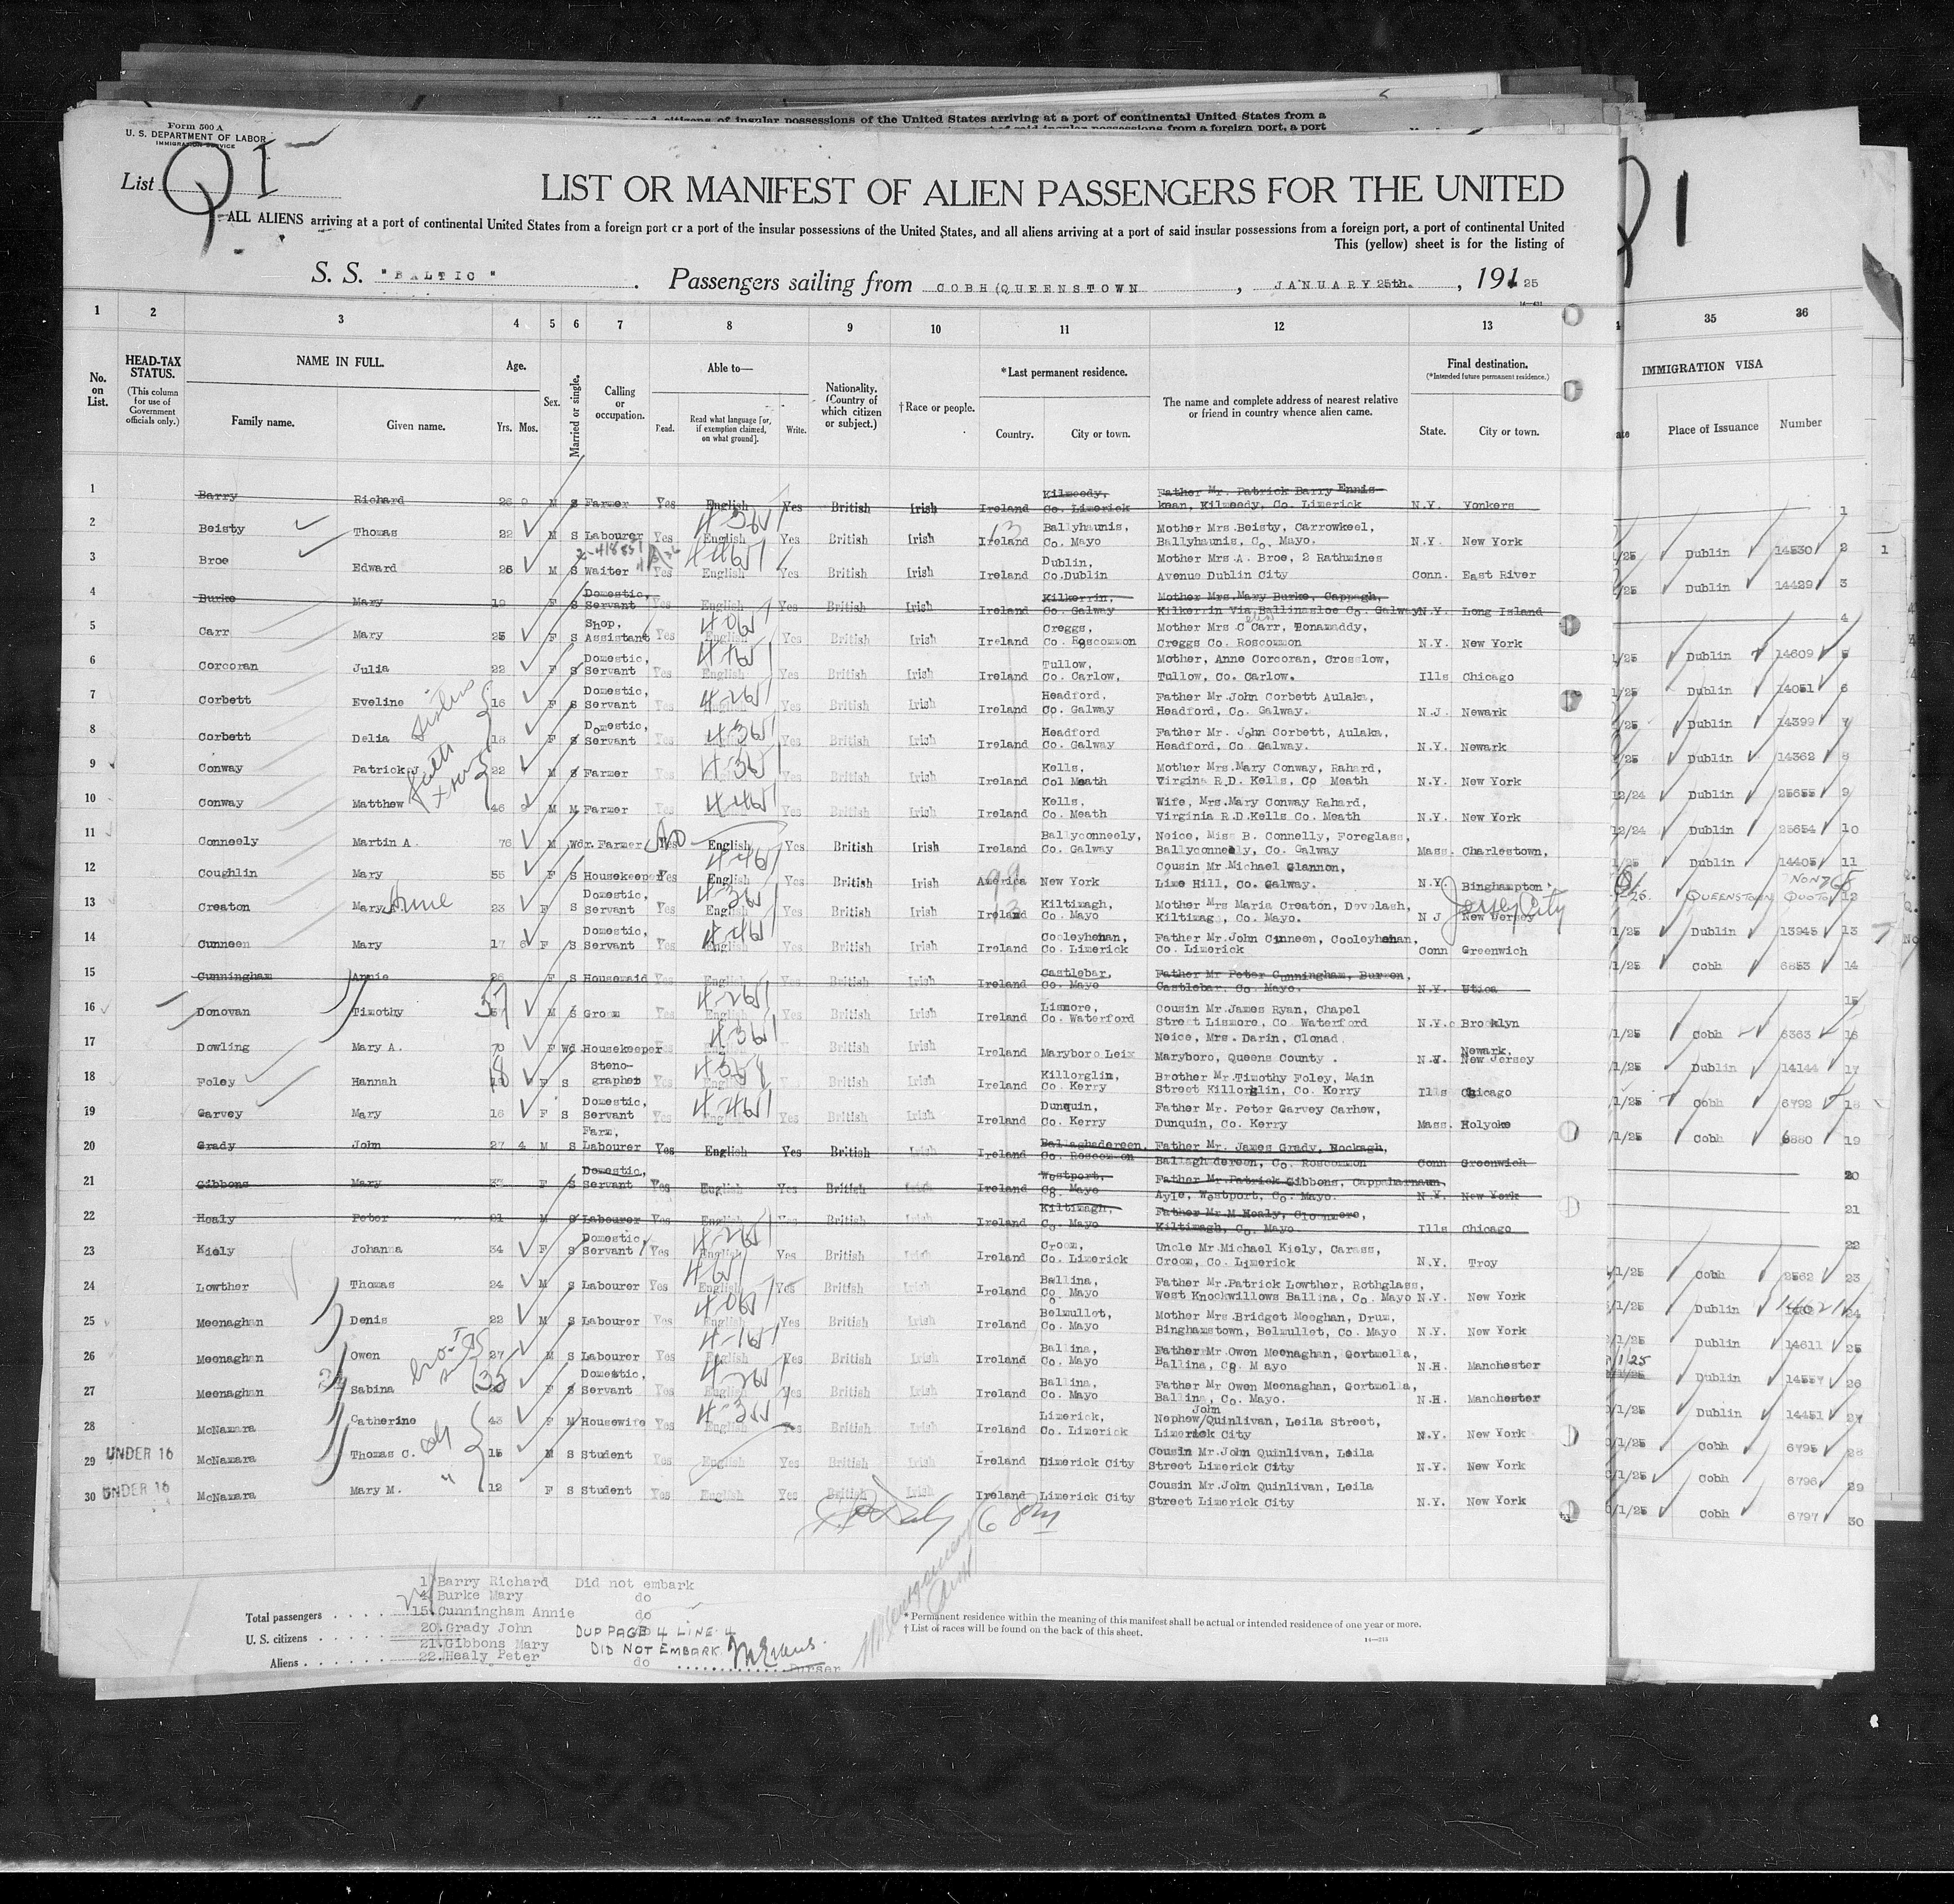 citizens of insular possessions of the United States arriving at a port of continental United States from a
insular possessions from a foreign port, a port
Form 500 A
U. S. DEPARTMENT OF LABOR
IMMIGRATION SERVICE
List Q I
LIST OR MANIFEST OF ALIEN PASSENGERS FOR THE UNITED
ALL ALIENS arriving at a port of continental United States from a foreign port or a port of the insular possessions of the United States, and all aliens arriving at a port of said insular possessions from a foreign port, a port of continental United
This (yellow) sheet is for the listing of
S. S. "BALTIC" . Passengers sailing from COBH (QUEENSTOWN , JANUARY 25th. , 191 25
1 2 3 4 5 6 7 8 9 10 11 12 13 35 36
No. on List.
HEAD-TAX STATUS.
(This column for use of Government officials only.)
NAME IN FULL.
Family name. Given name.
Age.
Yrs. Mos.
Sex.
Married or single.
Calling or occupation.
Able to—
Read. Read what language [or, if exemption claimed, on what ground]. Write.
Nationality. (Country of which citizen or subject.)
†Race or people.
*Last permanent residence.
Country. City or town.
The name and complete address of nearest relative or friend in country whence alien came.
Final destination.
(*Intended future permanent residence.)
State. City or town.
IMMIGRATION VISA
Place of Issuance Number
1 Barry Richard 26 M S Farmer Yes English Yes British Irish Ireland Kilmeedy, Co. Limerick Father Mr. Patrick Barry Ennis- kean, Kilmeedy, Co. Limerick N.Y. Yonkers 1
2 Beisty Thomas 22 M S Labourer Yes English Yes British Irish Ireland Ballyhaunis, Co. Mayo Mother Mrs. Beisty, Carrowkeel, Ballyhaunis, Co. Mayo. N.Y. New York 1/25 Dublin 14530 2
3 Broe Edward 26 M S Waiter Yes English Yes British Irish Ireland Dublin, Co. Dublin Mother Mrs. A. Broe, 2 Rathmines Avenue Dublin City Conn. East River /25 Dublin 14429 3
4 Burke Mary 19 F S Domestic, Servant Yes English Yes British Irish Ireland Kilkerrin, Co. Galway Mother Mrs. Mary Burke, Cappagh, Kilkerrin Via Ballinasloe Co. Galway N.Y. Long Island 4
5 Carr Mary 25 F S Shop, Assistant Yes English Yes British Irish Ireland Creggs, Co. Roscommon Mother Mrs C Carr, Tonamaddy, Creggs Co. Roscommon N.Y. New York 1/25 Dublin 14609 5
6 Corcoran Julia 22 F S Domestic, Servant Yes English Yes British Irish Ireland Tullow, Co. Carlow, Mother, Anne Corcoran, Crosslow, Tullow, Co. Carlow. Ills Chicago 1/25 Dublin 14051 6
7 Corbett Eveline 16 F S Domestic, Servant Yes English Yes British Irish Ireland Headford, Co. Galway Father Mr. John Corbett Aulaka, Headford, Co. Galway. N.J. Newark /25 Dublin 14399 7
8 Corbett Delia 18 F S Domestic, Servant Yes English Yes British Irish Ireland Headford Co. Galway Father Mr. John Corbett, Aulaka, Headford, Co. Galway. N.Y. Newark /25 Dublin 14362 8
sisters
9 Conway Patrick J 22 M S Farmer Yes English Yes British Irish Ireland Kells, Col Meath Mother Mrs. Mary Conway, Rahard, Virgina R.D. Kells, Co Meath N.Y. New York 12/24 Dublin 25655 9
10 Conway Matthew 46 9 M M Farmer Yes English Yes British Irish Ireland Kells, Co. Meath Wife, Mrs. Mary Conway Rahard, Virginia R.D. Kells Co. Meath N.Y. New York 12/24 Dublin 25654 10
11 Conneely Martin A. 76 M Wdr. Farmer No English Yes British Irish Ireland Ballyconneely, Co. Galway Neice, Miss B. Connelly, Foreglass, Ballyconneely, Co. Galway Mass. Charlestown, 1/25 Dublin 14405 11
12 Coughlin Mary 55 F S Housekeeper Yes English Yes British Irish America New York Cousin Mr. Michael Glannon, Lime Hill, Co. Galway. N.Y. Binghampton QUEENSTOWN NON QUOTA 12
13 Creaton Mary Anne 23 F S Domestic, Servant Yes English Yes British Irish Ireland Kiltimagh, Co. Mayo Mother Mrs Maria Creaton, Devolash, Kiltimag, Co. Mayo. N J New Jersey Jersey City 1/25 Dublin 13945 13
14 Cunneen Mary 17 6 F S Domestic, Servant Yes English Yes British Irish Ireland Cooleyhenan, Co. Limerick Father Mr. John Cunneen, Cooleyhenan, Co. Limerick Conn Greenwich 1/25 Cobh 6853 14
15 Cunningham Annie 26 F S Housemaid Yes English Yes British Irish Ireland Castlebar, Co. Mayo Father Mr Peter Cunningham, Burren, Castlebar, Co. Mayo. N.Y. Utica 15
16 Donovan Timothy 37 M S Groom Yes English Yes British Irish Ireland Lismore, Co. Waterford Cousin Mr. James Ryan, Chapel Street Lismore, Co Waterford N.Y. Brooklyn 1/25 Cobh 6363 16
17 Dowling Mary A. 70 F Wd. Housekeeper Yes English Yes British Irish Ireland Maryboro Leix Neice, Mrs. Darin, Clonad, Maryboro, Queens County. N.Y. Newark, New Jersey 1/25 Dublin 14144 17
18 Foley Hannah 18 F S Steno- grapher Yes English Yes British Irish Ireland Killorglin, Co. Kerry Brother Mr. Timothy Foley, Main Street Killorglin, Co. Kerry Ills Chicago 1/25 Cobh 6792 18
19 Garvey Mary 16 F S Domestic, Servant Yes English Yes British Irish Ireland Dunquin, Co. Kerry Father Mr. Peter Garvey Carhew, Dunquin, Co. Kerry Mass. Holyoke 1/25 Cobh 6880 19
20 Grady John 27 4 M S Farm, Labourer Yes English Yes British Irish Ireland Ballaghadereen, Co. Roscommon Father Mr. James Grady, Hockagh, Ballaghdereen, Co. Roscommon Conn Greenwich 20
21 Gibbons Mary 37 F S Domestic, Servant Yes English Yes British Irish Ireland Westport, Co. Mayo Father Mr. Patrick Gibbons, Cappaharnaun, Ayle, Westport, Co. Mayo. N.Y. New York 21
22 Healy Peter 21 M S Labourer Yes English Yes British Irish Ireland Kiltimagh, Co. Mayo Father Mr. M Healy, Cloonmore, Kiltimagh, Co. Mayo Ills Chicago 22
23 Kiely Johanna 34 F S Domestic, Servant Yes English Yes British Irish Ireland Croom, Co. Limerick Uncle Mr. Michael Kiely, Carass, Croom, Co. Limerick N.Y. Troy /1/25 Cobh 2562 23
24 Lowther Thomas 24 M S Labourer Yes English Yes British Irish Ireland Ballina, Co. Mayo Father Mr. Patrick Lowther, Rothglass, West Knockwillows Ballina, Co. Mayo N.Y. New York /1/25 Dublin 24
25 Meenaghan Denis 22 M S Labourer Yes English Yes British Irish Ireland Belmullet, Co. Mayo Mother Mrs. Bridget Meeghan, Drum, Binghamstown, Belmullet, Co. Mayo N.Y. New York /1/25 Dublin 14611 25
26 Meenaghan Owen 27 M S Labourer Yes English Yes British Irish Ireland Ballina, Co. Mayo Father Mr. Owen Meenaghan, Gortmella, Ballina, Co M ayo N.H. Manchester /1/25 Dublin 14557 26
27 Meenaghan Sabina 35 F S Domestic, Servant Yes English Yes British Irish Ireland Ballina, Co. Mayo Father Mr Owen Meenaghan, Gortmella, Ballina, Co. Mayo. N.H. Manchester /1/25 Dublin 14451 27
28 McNamara Catherine 43 F M Housewife Yes English Yes British Irish Ireland Limerick, Co. Limerick Nephew/John Quinlivan, Leila Street, Limerick City N.Y. New York /1/25 Cobh 6795 28
UNDER 16 29 McNamara Thomas C. 15 M S Student Yes English Yes British Irish Ireland Dimerick City Cousin Mr. John Quinlivan, Leila Street Limerick City N.Y. New York /1/25 Cobh 6796 29
UNDER 16 30 McNamara Mary M. 12 F S Student Yes English Yes British Irish Ireland Limerick City Cousin Mr. John Quinlivan, Leila Street Limerick City N.Y. New York /1/25 Cobh 6797 30
1 Barry Richard Did not embark
4 Burke Mary do
15. Cunningham Annie do
20. Grady John DUP PAGE 4 LINE 4
21. Gibbons Mary DID NOT EMBARK
22. Healy Peter do
Purser
Total passengers
U. S. citizens
Aliens
* Permanent residence within the meaning of this manifest shall be actual or intended residence of one year or more.
† List of races will be found on the back of this sheet.